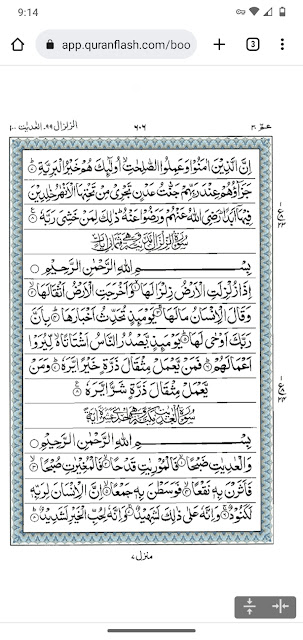 9:14
app.quranflash.com/boo
3
الزلزال ٩٩، العٰدیٰت ١٠٠
٦٠٦
عمّ ٣٠
اِنَّ الَّذِیْنَ اٰمَنُوْا وَعَمِلُوا الصّٰلِحٰتِ اُولٰٓئِکَ هُمْ خَیْرُ الْبَرِیَّةِ ۝٧
جَزَآؤُهُمْ عِنْدَ رَبِّهِمْ جَنّٰتُ عَدْنٍ تَجْرِیْ مِنْ تَحْتِهَا الْاَنْهٰرُ خٰلِدِیْنَ
فِیْهَاۤ اَبَدًا ؕ رَضِیَ اللّٰهُ عَنْهُمْ وَرَضُوْا عَنْهُ ؕ ذٰلِکَ لِمَنْ خَشِیَ رَبَّهٗ ۝٨
بِسْمِ اللّٰهِ الرَّحْمٰنِ الرَّحِیْمِ
اِذَا زُلْزِلَتِ الْاَرْضُ زِلْزَالَهَا ۝١ وَاَخْرَجَتِ الْاَرْضُ اَثْقَالَهَا ۝٢
وَقَالَ الْاِنْسَانُ مَا لَهَا ۝٣ یَوْمَئِذٍ تُحَدِّثُ اَخْبَارَهَا ۝٤ بِاَنَّ
رَبَّکَ اَوْحٰی لَهَا ۝٥ یَوْمَئِذٍ یَّصْدُرُ النَّاسُ اَشْتَاتًا لِّیُرَوْا
اَعْمَالَهُمْ ۝٦ فَمَنْ یَّعْمَلْ مِثْقَالَ ذَرَّةٍ خَیْرًا یَّرَهٗ ۝٧ وَمَنْ
یَّعْمَلْ مِثْقَالَ ذَرَّةٍ شَرًّا یَّرَهٗ ۝٨
بِسْمِ اللّٰهِ الرَّحْمٰنِ الرَّحِیْمِ
وَالْعٰدِیٰتِ ضَبْحًا ۝١ فَالْمُوْرِیٰتِ قَدْحًا ۝٢ فَالْمُغِیْرٰتِ صُبْحًا ۝٣
فَاَثَرْنَ بِهٖ نَقْعًا ۝٤ فَوَسَطْنَ بِهٖ جَمْعًا ۝٥ اِنَّ الْاِنْسَانَ لِرَبِّهٖ
لَکَنُوْدٌ ۝٦ وَاِنَّهٗ عَلٰی ذٰلِکَ لَشَهِیْدٌ ۝٧ وَاِنَّهٗ لِحُبِّ الْخَیْرِ لَشَدِیْدٌ ۝٨
منزل ٧